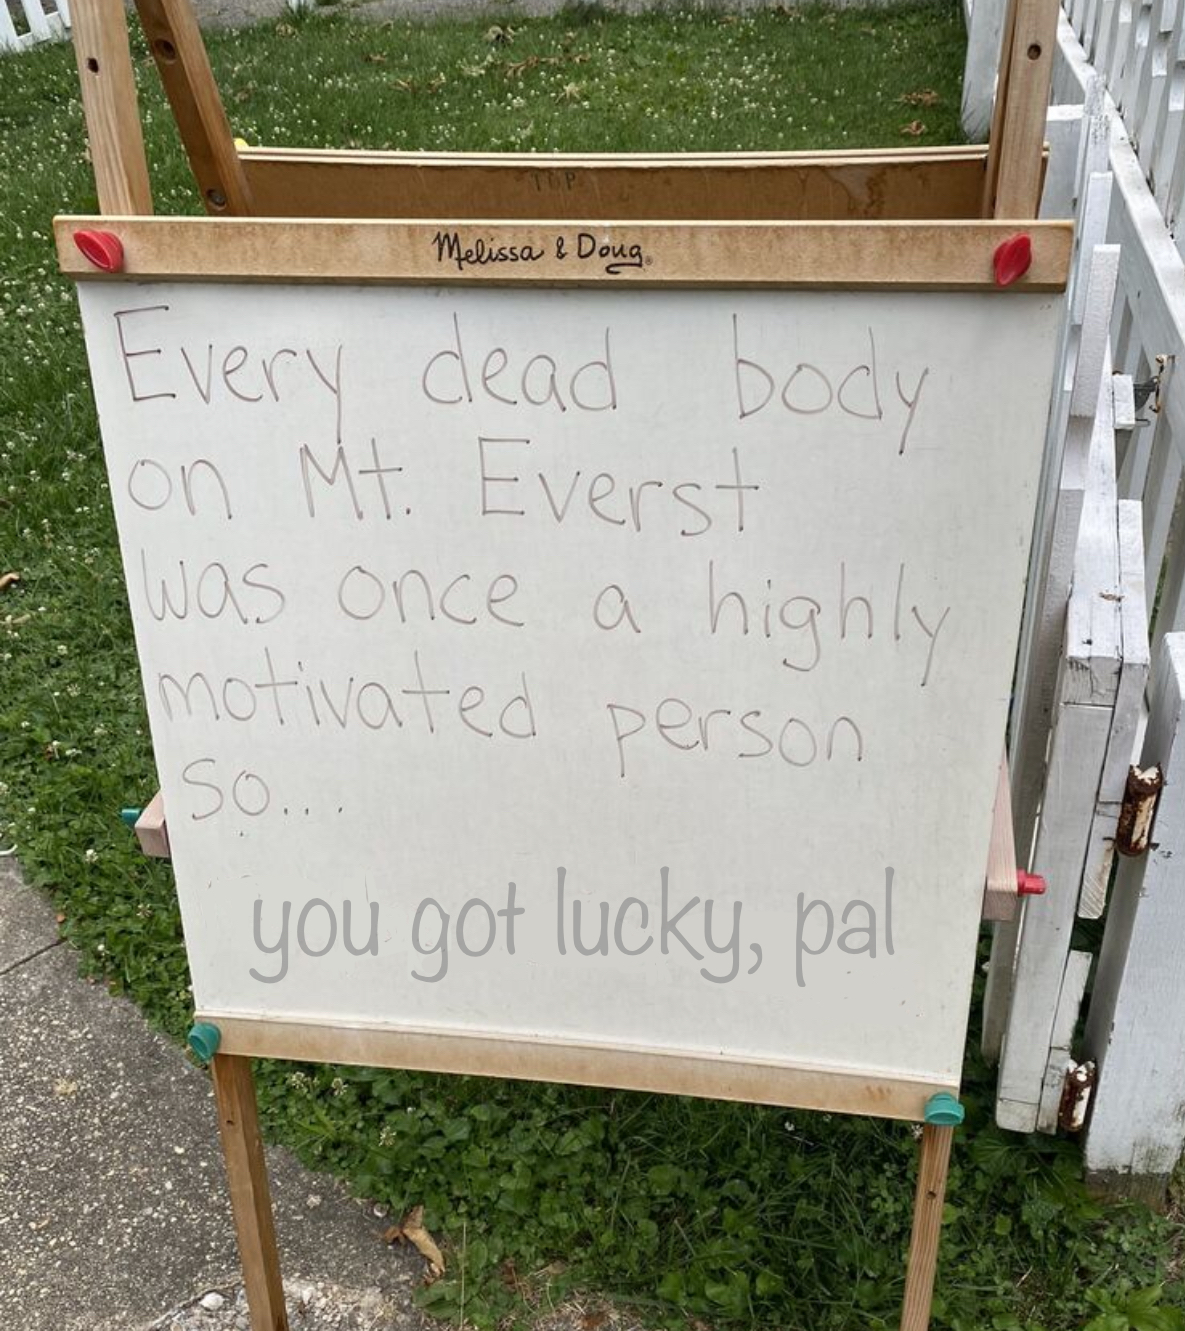 TOP
Melissa & Doug®
Every dead body
on Mt. Everst
was once a highly
motivated person
so...
you got lucky, pal